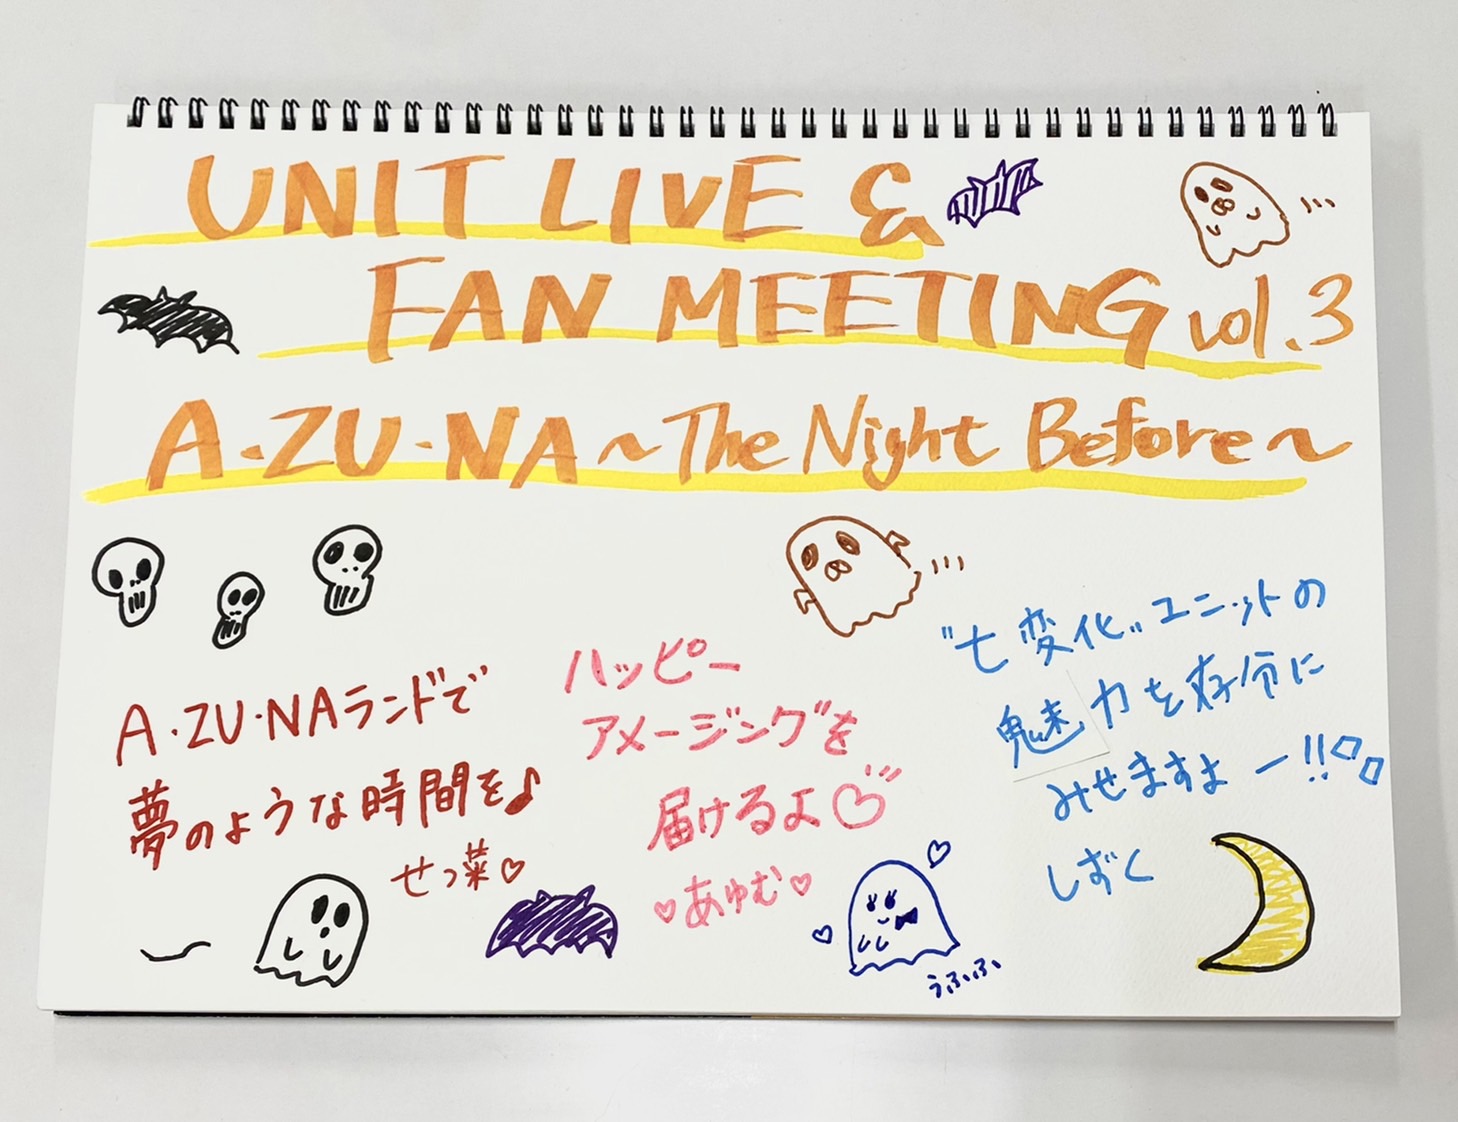 UNIT LIVE &
FAN MEETING vol.3
A・ZU・NA ~The Night Before~
A・ZU・NAランドで
夢のような時間を♪
せつ菜♡
ハッピー
アメージングを
届けるよ♡
♡あゆむ♡
"七変化"ユニットの
魅力を存分に
みせますよー!!
しずく
うふふ